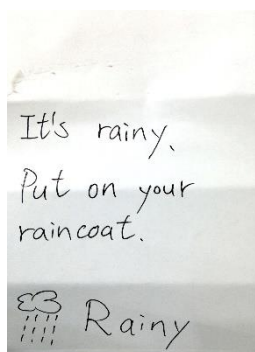 It's rainy.
Put on your
raincoat.
Rainy